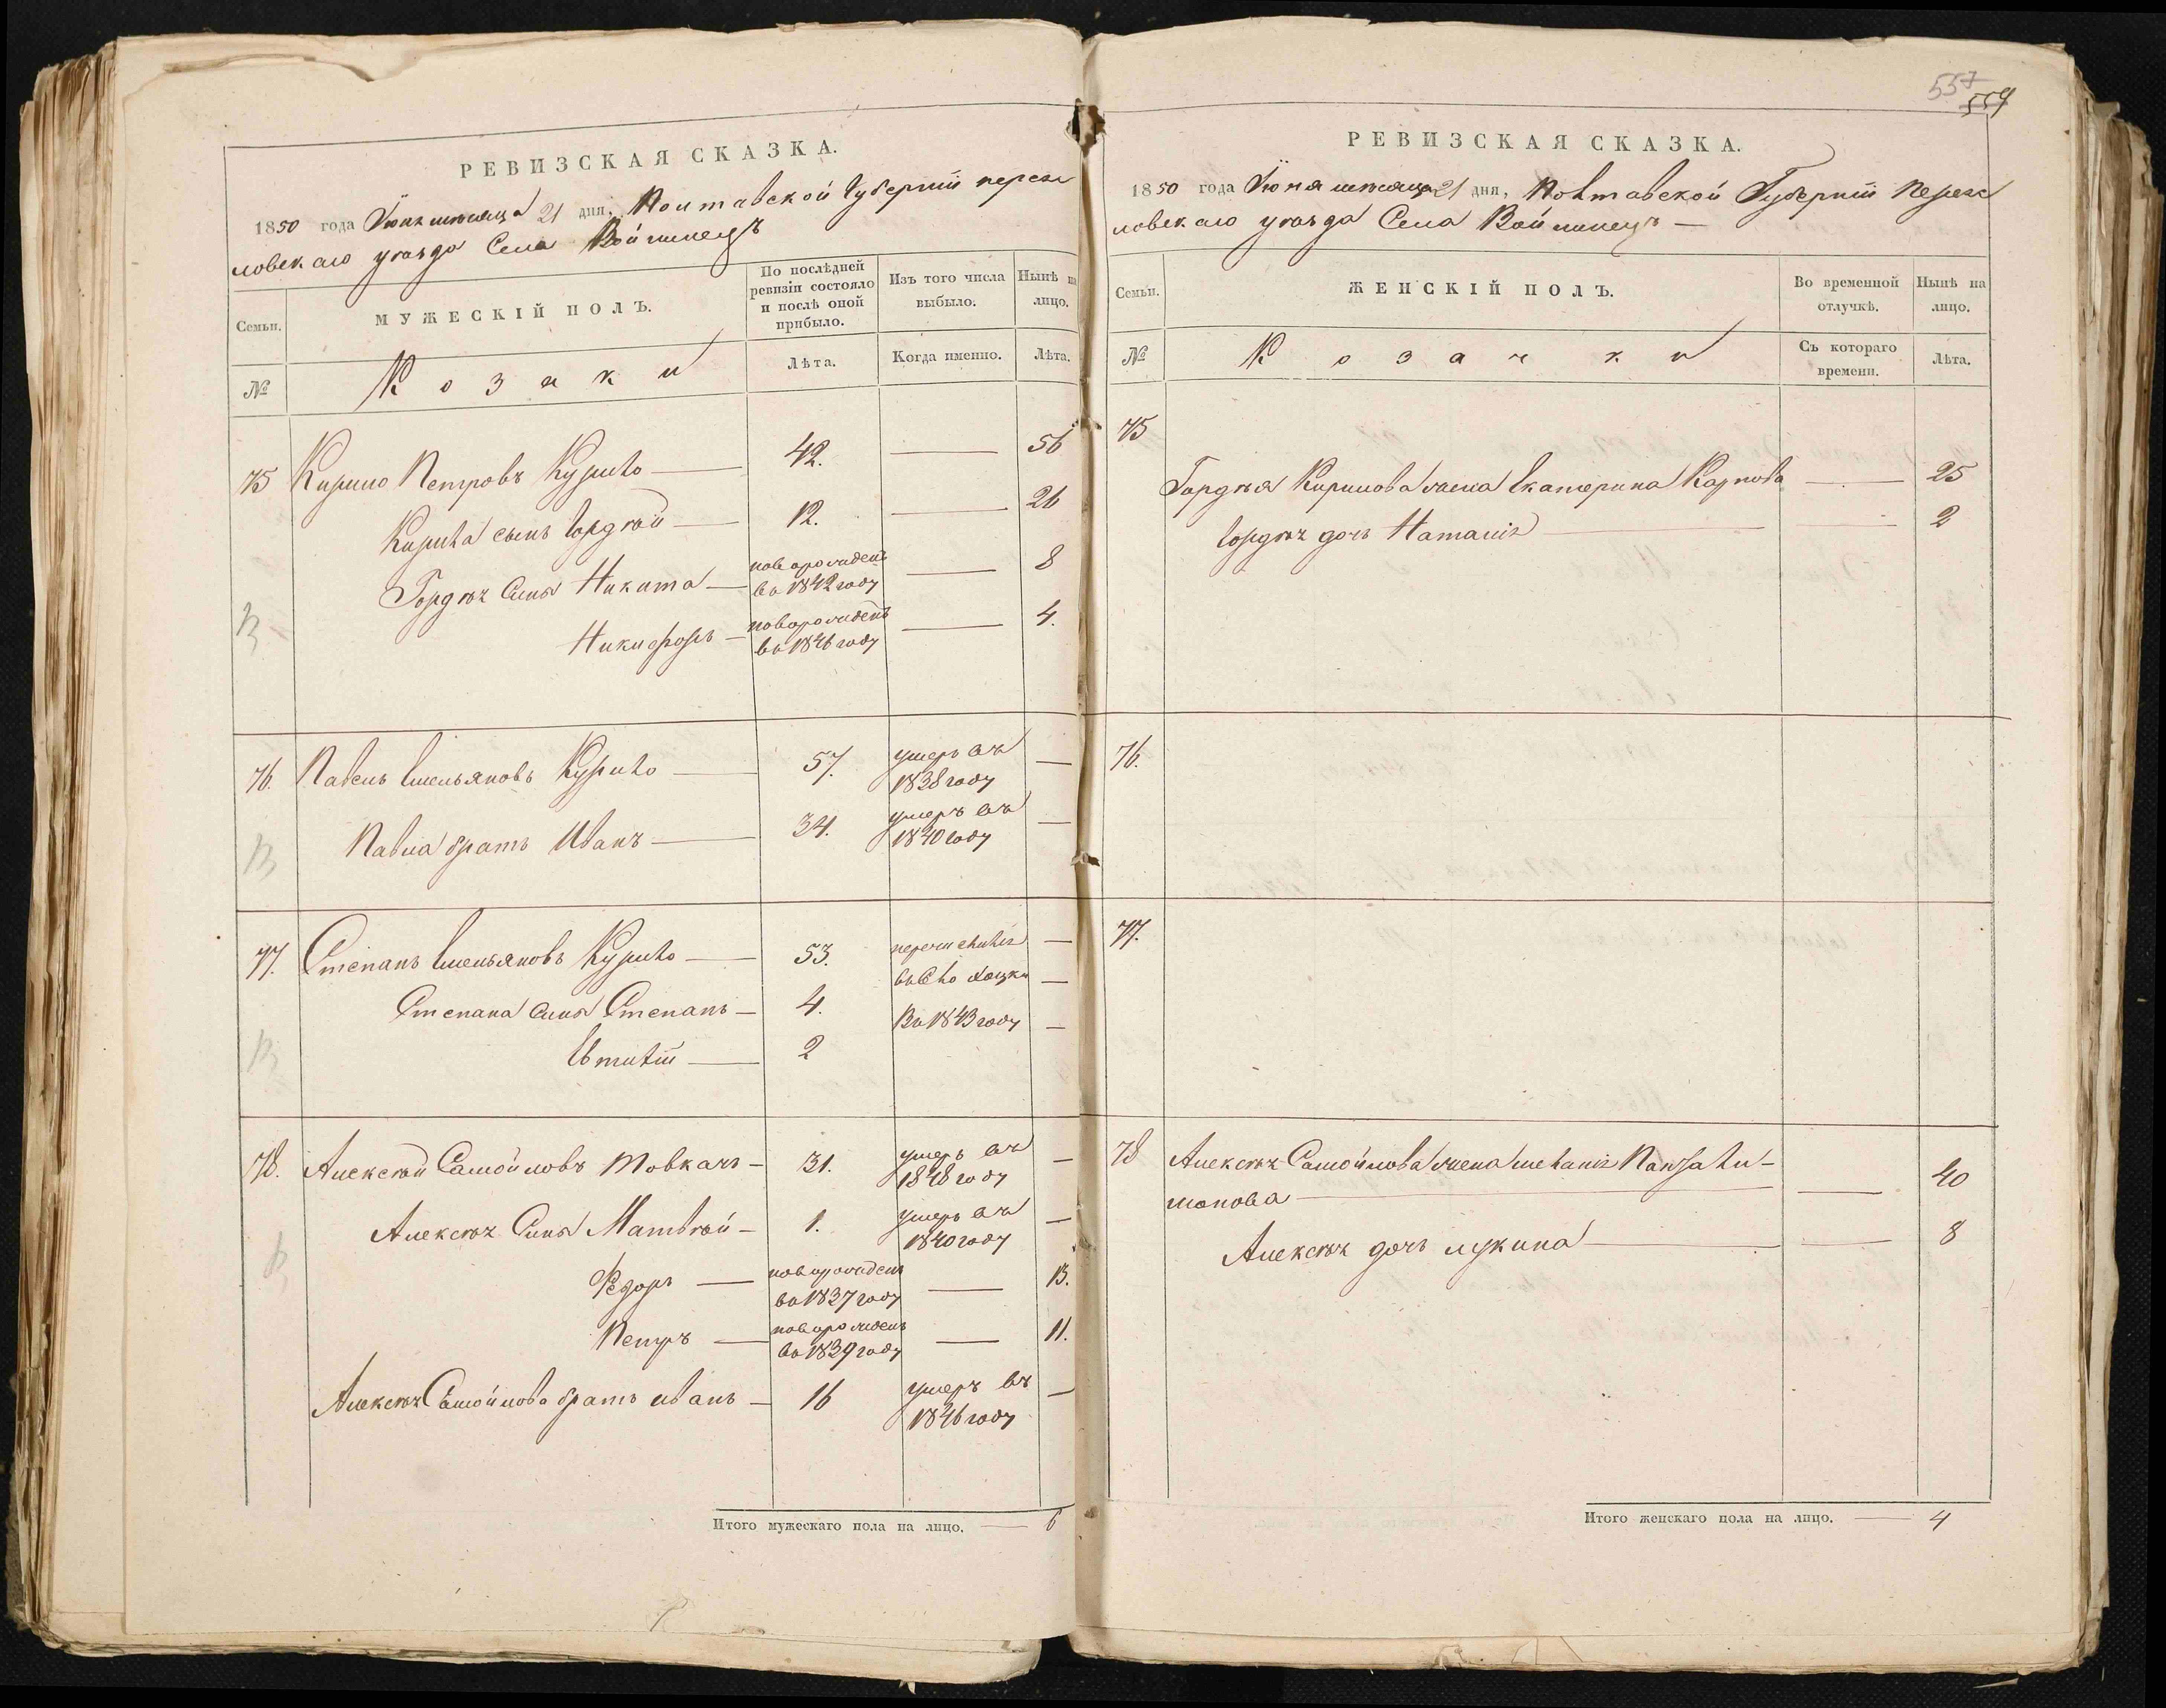 РЕВИЗСКАЯ СКАЗКА.
1850 года Іюня мѣсяца 21 дня, Полтавской Губерніи переяс
ловскаго уѣзда Села Войтинецъ
Семьи.
МУЖЕСКІЙ ПОЛЪ.
По послѣдней ревизіи состояло и послѣ оной прибыло.
Изъ того числа выбыло.
Нынѣ на лицо.
№
Козаки
Лѣта.
Когда именно.
Лѣта.
75 Кирило Петровъ Курило 42. 56
Кирила сынъ Гордѣй 12. 26
Гордѣя Сыны Никита новорожденъ въ 1842 году 8
Никифоръ новорожденъ въ 1846 году 4.
76. Павелъ Емельяновъ Курило 57. умеръ въ 1838 году
Павла братъ Иванъ 34. умеръ въ 1840 году
77. Степанъ Емельяновъ Курило 53. перечислился
Степана Сыны Степанъ 4. Въ 1843 году
Евтихій 2
78. Алексѣй Самойловъ Товкачъ 31. умеръ въ 1848 году
Алексѣя Сыны Матвѣй 1. умеръ въ 1840 году
Федоръ новорожденъ въ 1837 году 13.
Петръ новорожденъ въ 1839 году 11.
Алексѣя Самойлова братъ иванъ 16 умеръ въ 1846 году
Итого мужескаго пола на лицо. 6
557
559
РЕВИЗСКАЯ СКАЗКА.
1850 года Іюня мѣсяца 21 дня, Полтавской Губерніи Переяс
ловскаго уѣзда Села Войтинецъ
Семьи.
ЖЕНСКІЙ ПОЛЪ.
Во временной отлучкѣ.
Нынѣ на лицо.
№
Козачки
Съ котораго времени.
Лѣта.
75
Гордѣя Кирилова жена Екатерина Карпова 25
Гордѣя дочь Наталія 2
76.
77.
78 Алексѣя Самойлова жена меланія
40
Алексѣя дочь лукина 8
Итого женскаго пола на лицо. 4